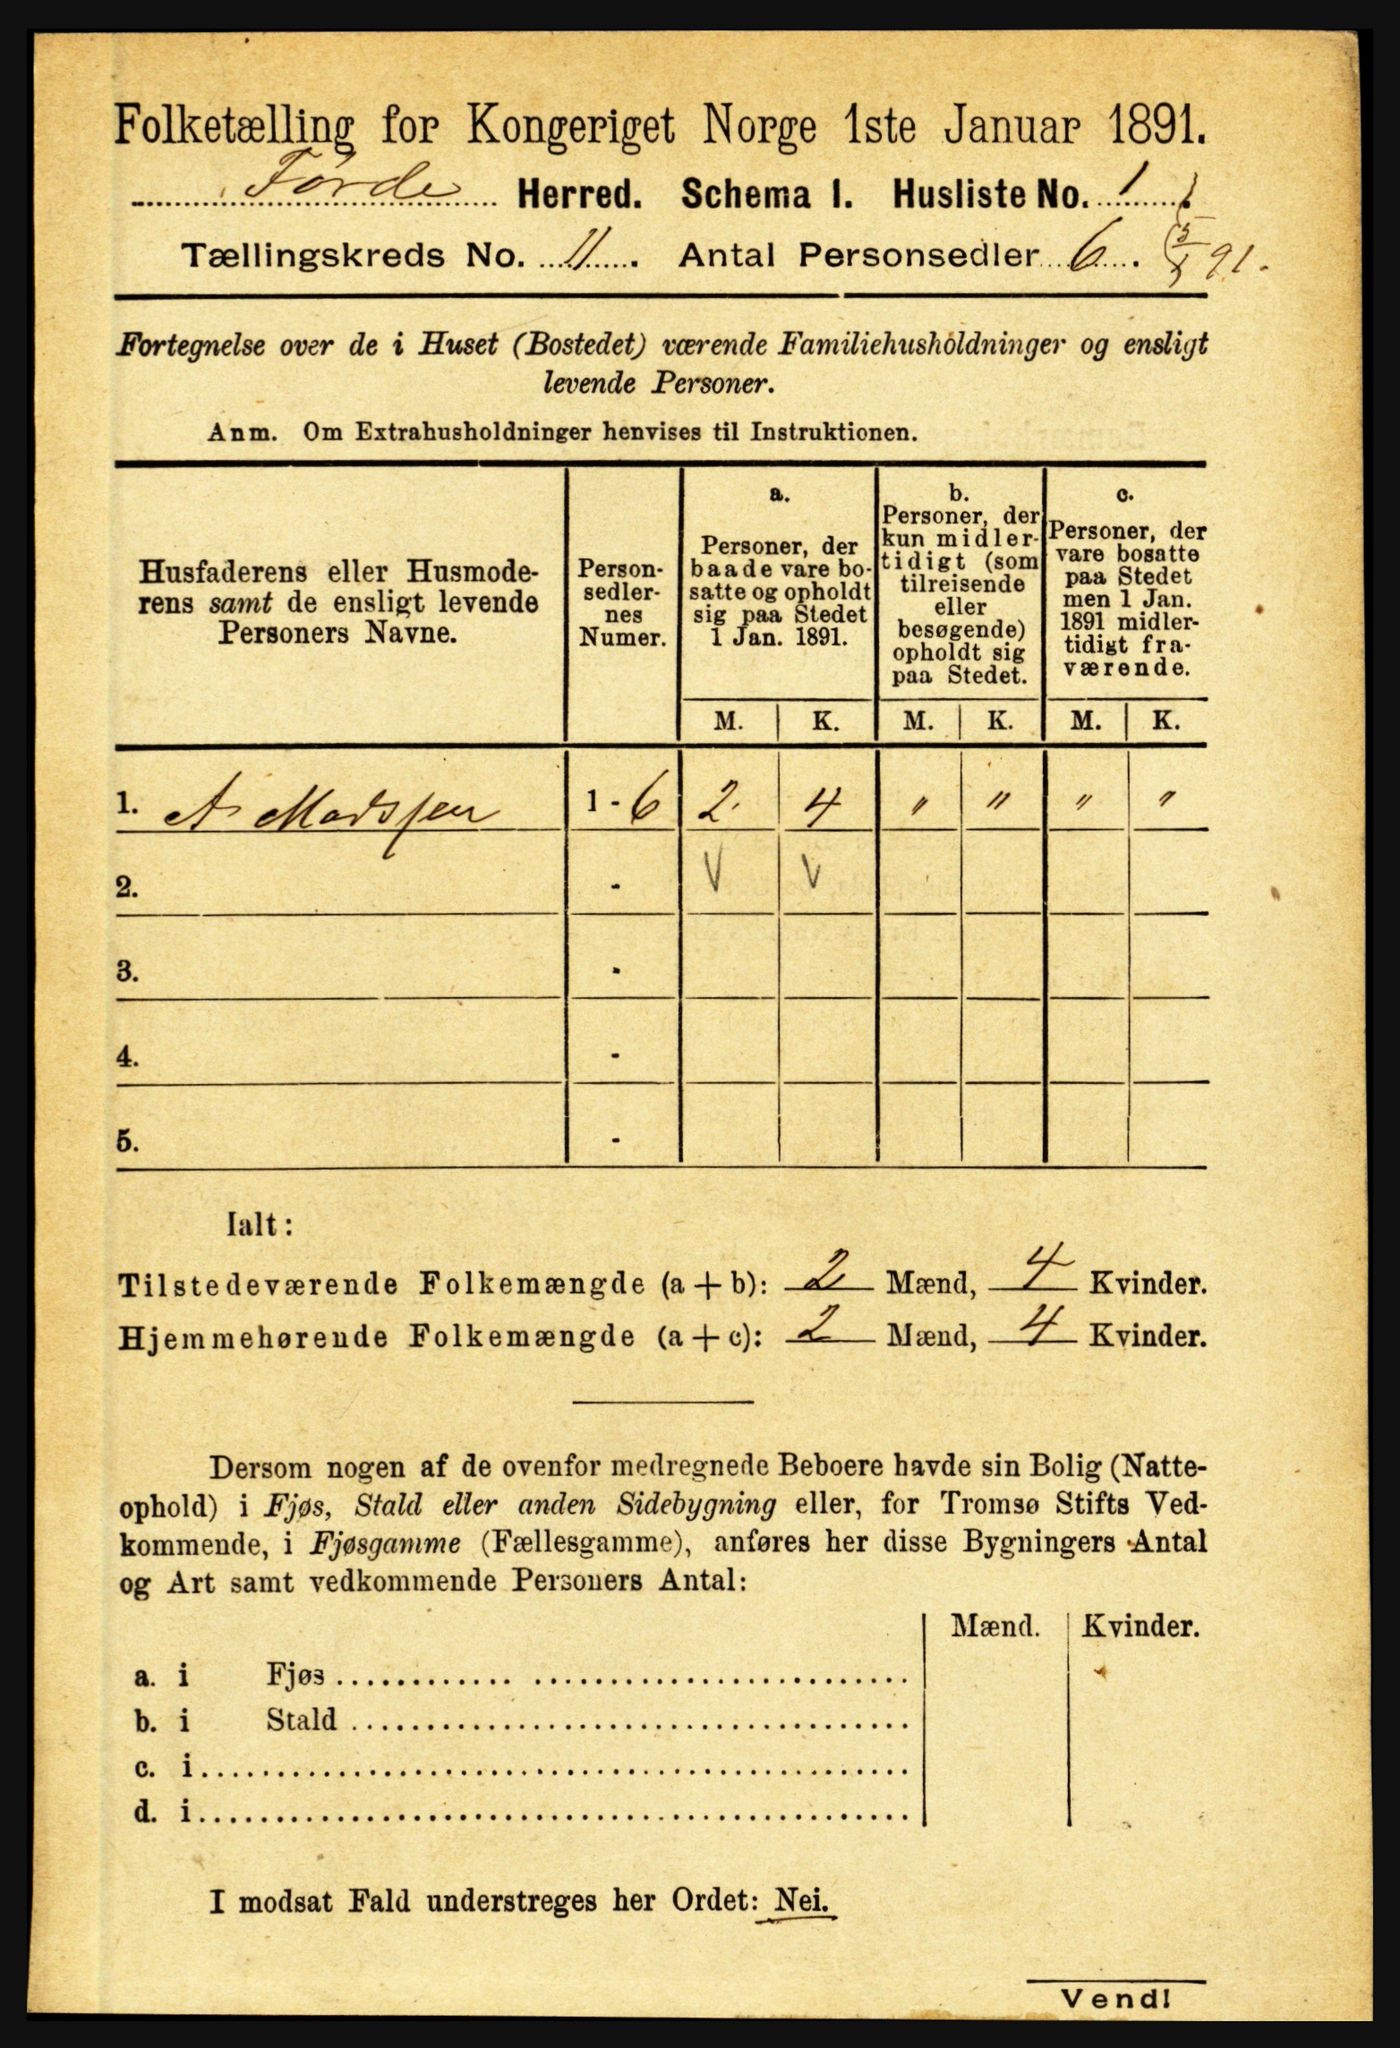 Folketælling for Kongeriget Norge 1ste Januar 1891.
Førde Herred. Schema 1. Husliste No. 1
Tællingskreds No. 11. Antal Personsedler 6. 5/1 91.
Fortegnelse over de i Huset (Bostedet) værende Familiehusholdninger og ensligt
levende Personer.
Anm. Om Extrahusholdninger henvises til Instruktionen.
Husfaderens eller Husmode-
rens samt de ensligt levende
Personers Navne.
Person-
sedler-
nes
Numer.
a.
Personer, der
baade vare bo-
satte og opholdt
sig paa Stedet
1 Jan. 1891.
b.
Personer, der
kun midler-
tidigt (som
tilreisende
eller
besøgende)
opholdt sig
paa Stedet.
c.
Personer, der
vare bosatte
paa Stedet
men 1 Jan.
1891 midler-
tidigt fra-
værende.
M. K. M. K. M. K.
1. A. Madssen 1 - 6 2. 4 " " " "
2. - V V
3. -
4. -
5. -
Ialt:
Tilstedeværende Folkemængde (a + b): 2 Mænd, 4 Kvinder.
Hjemmehørende Folkemængde (a + c): 2 Mænd, 4 Kvinder.
Dersom nogen af de ovenfor medregnede Beboere havde sin Bolig (Natte-
ophold) i Fjøs, Stald eller anden Sidebygning eller, for Tromsø Stifts Ved-
kommende, i Fjøsgamme (Fællesgamme), anføres her disse Bygningers Antal
og Art samt vedkommende Personers Antal:
Mænd. Kvinder.
a. i Fjøs
b. i Stald
c. i
d. i
I modsat Fald understreges her Ordet: Nei.
Vend!